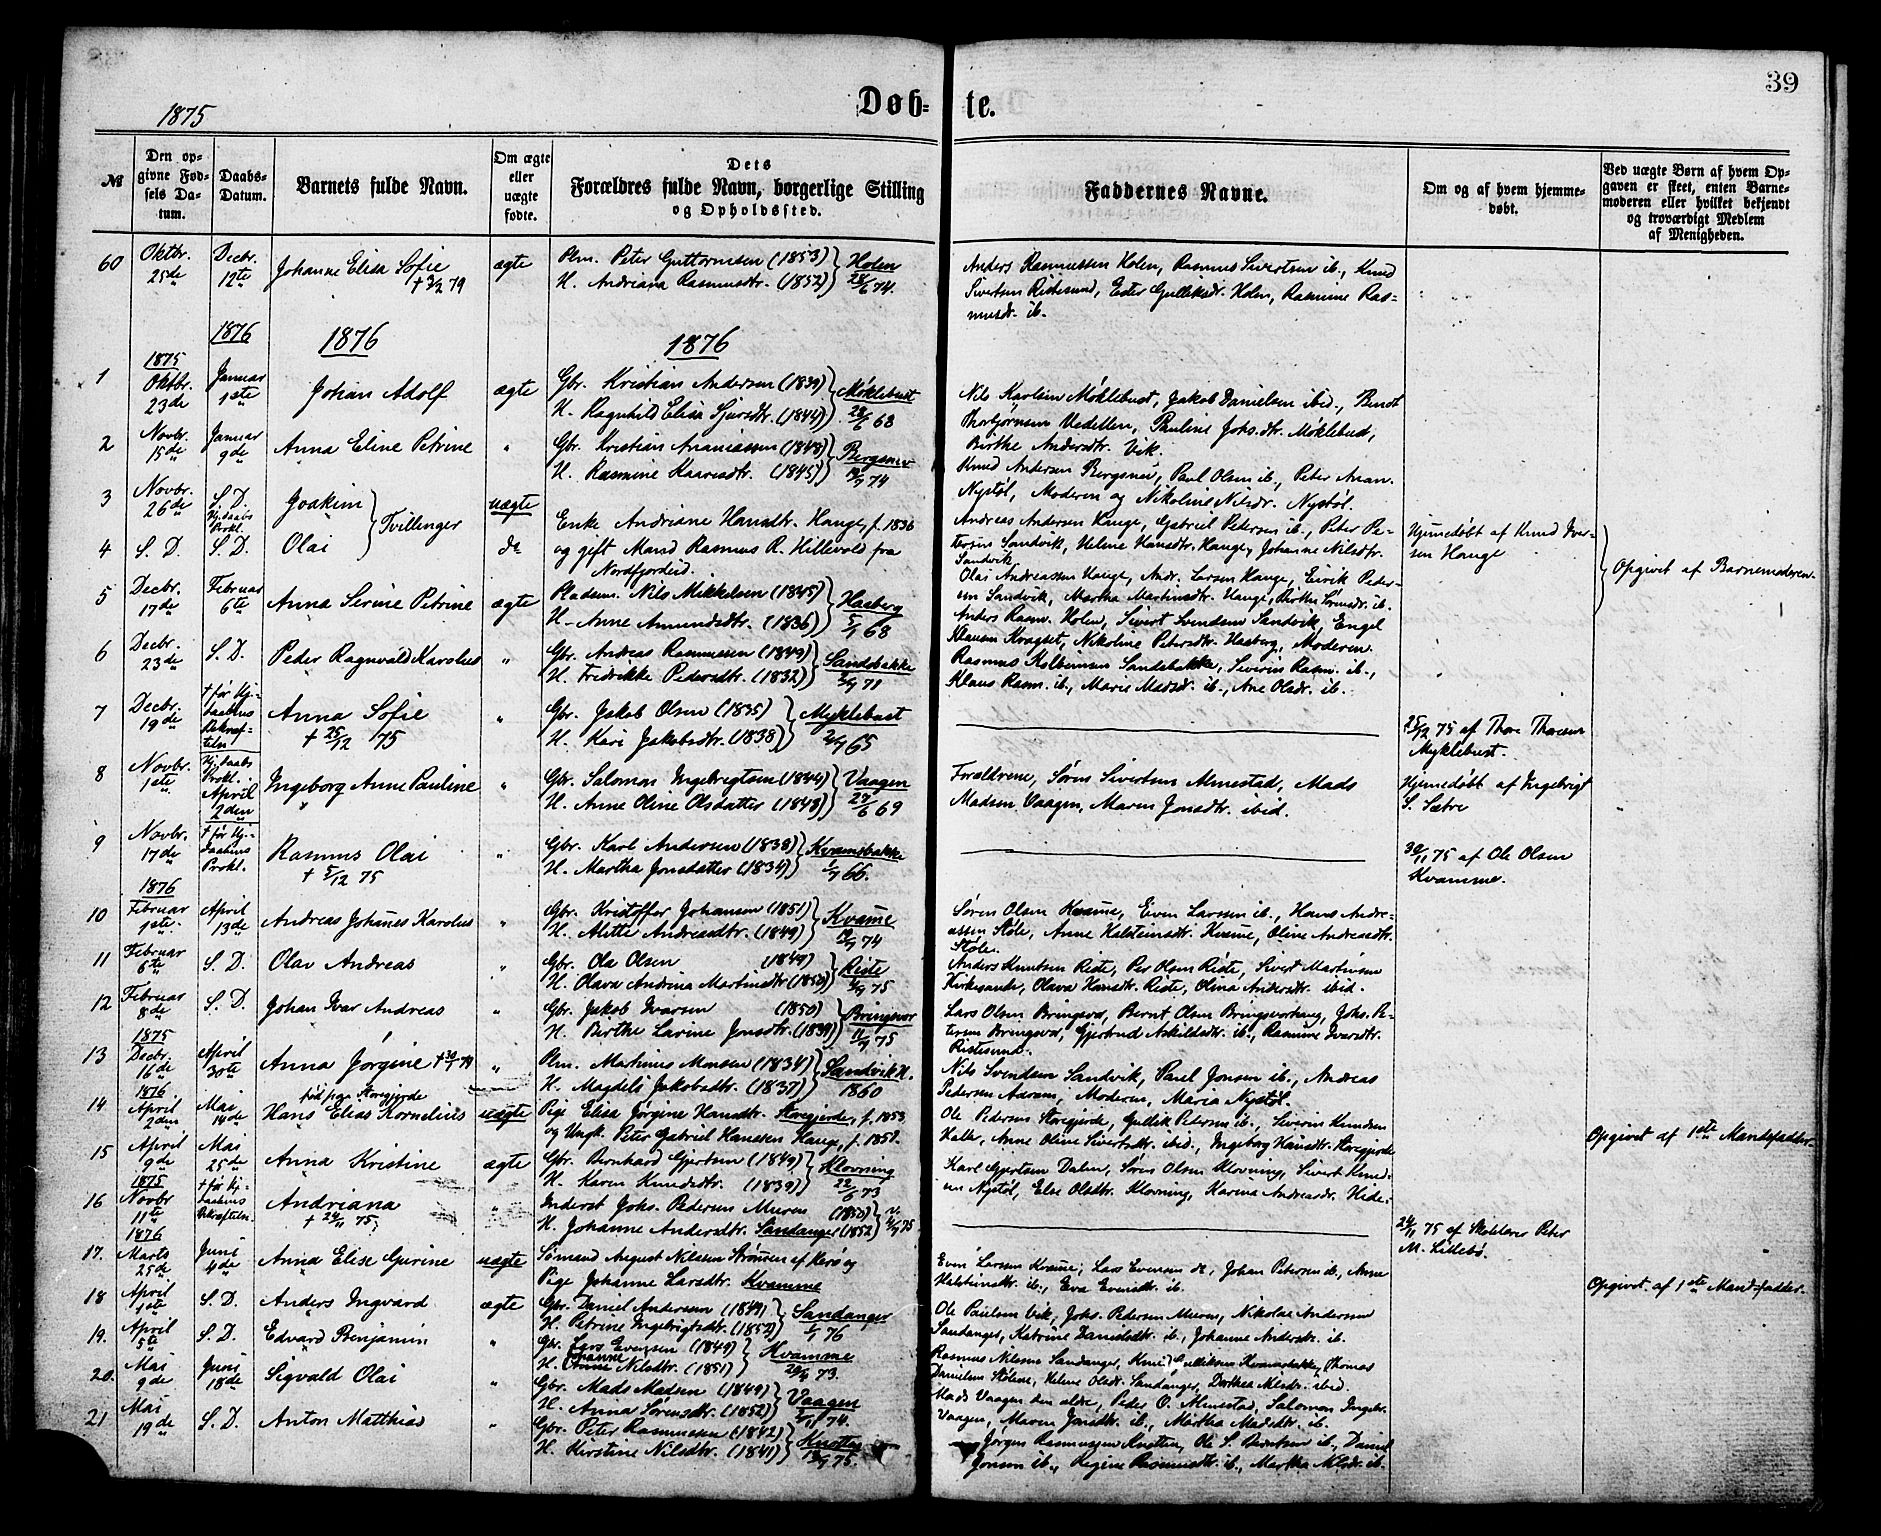 39
1875
Døb- te.
№
Den opgivne Fødsels Datum.
Daabs-Datum.
Barnets fulde Navn.
Om ægte eller uægte fødte.
Dets Forældres fulde Navn, borgerlige Stilling og Opholdssted.
Faddernes Navne.
Om og af hvem hjemmedøbt.
Ved uægte Børn af hvem Opgaven er skeet, enten Barnemoderen eller hvilket bekjendt og troværdigt Medlem af Menigheden.
60 Oktbr. 25de Decbr. 12te Johanne Elisa Sofie + 3/2 79 ægte Plm. Peter Guttormsen (1853) H. Andriana Rasmusdtr. (1852) Holen 28/6 74.
Anders Rasmussen Holen, Rasmus Sivertsen ib., Knud
Sivertsen Ristesund, Ester Gulliksdr. Holen, Rasmine Ras-
musdr. ib.
1876 1876 1876
1 1875 Oktbr. 23de Januar 1ste Johan Adolf ægte Gbr. Kristian Andersen (1839) H. Ragnhild Elisa Sjursdtr. (1844) Møklebust 28/6 68
Nils Karlsen Møklebust, Jakob Danielsen ibid., Bendt
Thorbjørnsen Vedellen, Pauline Johs.dtr. Møklebust,
Birthe Andersdtr. Vik.
2 Novbr. 15de Januar 9de Anna Eline Petrine " Gbr. Kristian Ananiassen (1848) H. Rasmine Kaaresdtr. (1845) Bergsnev 74
Knud Andersen Bergsnev, Paul Olsen ib., Peter Anan.
Nystøl, Moderen og Nikoline Nilsdr. Nystøl.
3 Novbr. 26de S. D. Hj.daabs Prokl. Joakim uægte
4 S. D. S. D. Olai Tvillinger do
Enke Andriane Hansdtr. Hauge, f. 1836
og gift Mand Rasmus R. Hillevold fra
Nordfjordeid.
Andreas Andersen Hauge, Gabriel Pedersen ib., Peter Pe-
tersen Sandvik, Helene Hansdtr. Hauge, Johanne Nilsdtr.
Sandvik
Olai Andreassen Hauge, Andr. Larsen Hauge, Eirik Peder-
sen Sandvik, Martha Martinsdtr. Hauge, Birthe Sørensdtr. ib.
Hjemmedøbt af Knud Iver-
sen Hauge
Opgivet af Barnemoderen.
5 Decbr. 17de Februar 6te Anna Serine Petrine ægte Pladsm. Nils Mikkelsen (1845) H. Anne Amundsdtr. (1836) Haaberg 68
Anders Rasm. Holen, Sivert Svendsen Sandvik, Engel
Klausen Kragset, Nikoline Petersdtr. Haaberg, Moderen.
6 Decbr. 23de S. D. Peder Ragnvald Karolius " Gbr. Andreas Rasmussen (1849) H. Fredrikke Pedersdtr. (1832) Sandsbakke 71
Rasmus Kolbensen Sandsbakke, Severin Rasm. ib.,
Klaus Rasm. ib., Marie Madsdr. ib., Ane Olsdr. ib.
7 Decbr. 19de + før Hj.daabens Bekræftelse Anna Sofie + 25/12 75 " Gbr. Jakob Olsen (1835) H. Kari Jakobsdtr. (1838) Myklebust 65
25/12 75 af Thore Thoresen
Myklebust.
8 Novbr. 1ste Hj.daabs Prokl. April 2den Ingeborg Anne Pauline " Gbr. Salomon Ingebrigtsen (1844) H. Anne Oline Olsdatter (1848) Vaagen 27/6 69
Forældrene, Søren Sivertsen Almestad, Mads
Madsen Vaagen, Maren Jonsdtr. ibid.
Hjemmedøbt af Ingebrigt
S. Sætre
9 Novbr. 17de + før Hj.daabens Prokl. Rasmus Olai + 5/12 75 " Gbr. Karl Andersen (1838) H. Martha Jonsdatter (1834) Kvamsbakke 66.
30/11 75 af Ole Olsen
Kvamme.
10 1876 Februar 1ste April 13de Andreas Johannes Karolus " Gbr. Kristoffer Johansen (1851) H. Mette Andreasdtr. (1849) Kvame 74
Søren Olsen Kvame, Even Larsen ib., Hans Andre-
assen Støle, Anne Halsteinsdtr. Kvame, Oline Andreasdtr.
Støle.
11 Februar 6te S. D. Olav Andreas " Gbr. Ola Olsen (1849) H. Olava Andrina Martinsdtr (1850) Riste 75
Anders Knutsen Riste, Per Olsen Riste, Sivert Martinsen
Kirkesande, Olava Hansdtr. Riste, Olina Andersdtr. ibid.
12 Februar 8de S. D. Johan Ivar Andreas " Gbr. Jakob Ivarsen (1850) H. Berthe Larine Jonsdtr. (1839) Bringsvor 75
Lars Olsen Bringsvor, Bernt Olsen Bringsvorhaug, Johs. Pe-
tersen Bringsvor, Gjertrud Askildsdtr. ib., Rasmine Iversdtr.
Ristesund.
13 1875 Decbr. 16de April 30te Anna Jørgine " Plm. Martinus Monsen (1834) H. Magdele Jakobsdtr. (1837) Sandvik H. 1860
Nils Svendsen Sandvik, Paul Jonsen ib., Andreas
Pedersen Aarseen, Moderen, Maria Nystøl.
14 1876 April 2den Mai 14de født paa Storegjerde Hans Elias Kornelius uægte Pige Elisa Jørgine Hansdtr. Storegjerde, f. 1853
og Ungk. Peter Gabriel Hanssen Hauge, f. 1851.
Ole Pedersen Storegjerde, Gullik Petersen ib., Severin Knudsen
Halle, Anne Oline Sivertsdtr. ibid., Ingeborg Hansdtr. Storegjerde
Opgivet af 1ste Mandsfadder.
15 April 9de Mai 25de Anna Kristine ægte Gbr. Bernhard Gjertsen (1849) H. Karen Knudsdtr. (1839) Klovning 22/6 73
Karl Gjertsen Dalen, Søren Olsen Klovning, Sivert Knud-
sen Nystøl, Else Olsdtr. Klovning, Karina Andreasdr. Hide.
16 1875 Novbr 11te + før Hj.daabens Bekræftelse. Andriana + 24/11 75 " Inderst Johs. Pedersen Muren (1850) H. Johanne Andersdtr. Sandanger (1852) 75
24/11 75 af Skolelærer Peter
M. Lillebø.
17. 1876 Marts 25de Juni 4de Anna Elise Gurine uægte Sømand August Nilssen Strømmen af Herø og
Pige Johanne Larsdtr. Kvamme
Even Larsen Kvame, Lars Evensen ds, Johan Petersen ib., Anne
Halsteinsdtr. ib., Eva Evensdtr. ib.
Opgivet af 1ste Mandsfadder.
18 April 1ste S. D. Anders Ingvard ægte Gbr. Daniel Andersen (1849) H. Petrine Ingebrigtsdtr. (1852) Sandanger 76
Ole Paulsen Vik, Johs. Pedersen Muren, Nikolai Andersen
Sandanger, Katrine Danielsdtr. ib., Johanne Andersdtr. ib.
19. April 5te S. D. Edvard Benjamin " Gbr. Lars Evensen (1849) H. Johanne Nilsdtr. (1851) Kvamme 73.
Rasmus Nilssen Sandanger, Knud Gulliksen Kvamsbakke, Thomas
Danielsen Stølene, Helene Olsdr. Sandanger, Dorthea Nilsdr. ibid.
20. Mai 9de Juni 18de Sigvald Olai " Gbr. Mads Madsen (1849) H. Anna Sørensdtr. (1852) Vaagen 74.
Mads Vaagen den ældre, Peder O. Almestad, Salomon Ingebr.
Vaagen, Maren Jonsdtr. ib., Martha Madsdtr. ib.
21 Mai 19de S. D. Anton Matthias " Gbr. Peter Rasmussen (1842) H. Kirstine Nilsdtr. (1841) Knotten 75.
Jørgen Rasmussen Knotten, Ole S. Berntsen ib., Daniel
Jonsen ib., Regine Rasmusdtr. ib., Martha Nilsdr. ib.